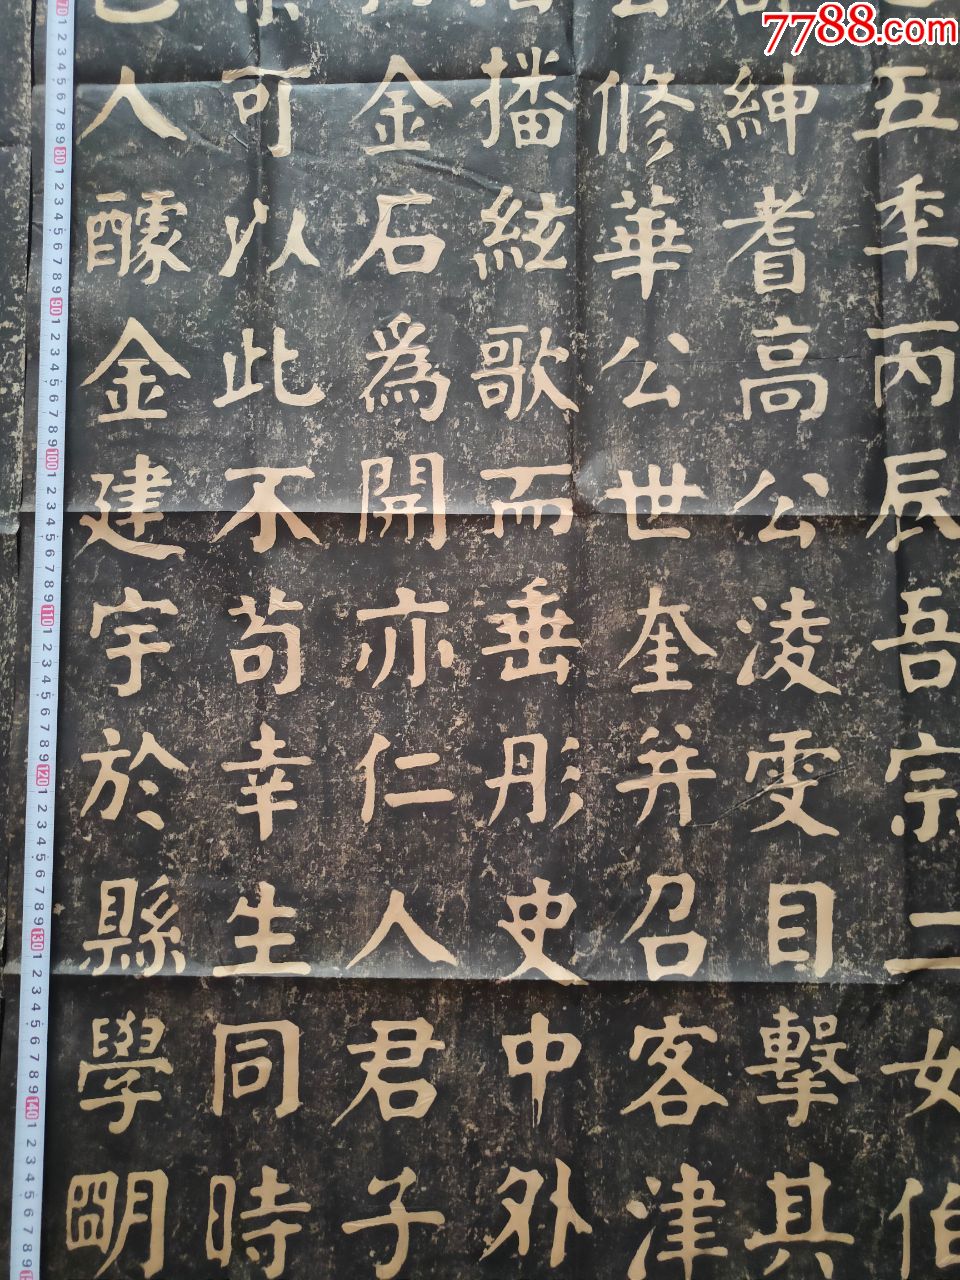 7788.com
五年丙辰吾宗二女伯
紳耆高公凌雯目擊其
修華公世奎并召客津
播絃歌而垂彤史中外
金石爲開亦仁人君子
可以此不苟幸生同時
人醵金建宇於縣學朙